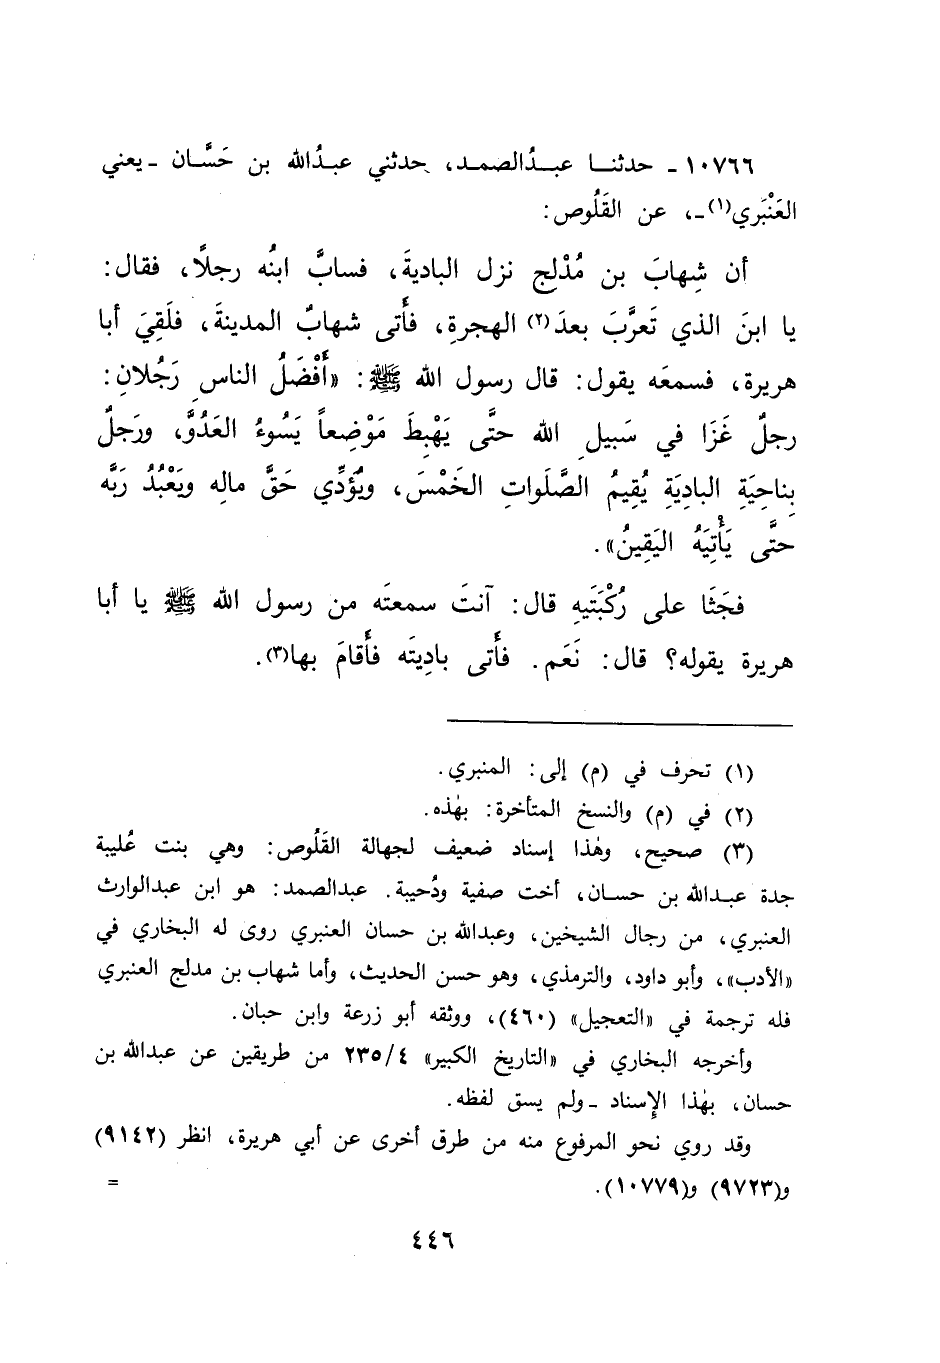 ١٠٧٦٦ - حدثنا عبدُالصمد، حدثني عبدُالله بن حَسَّان - يعني
العَنْبَري(١)-، عن القَلُوص:
أن شِهابَ بن مُدْلِج نزل الباديةَ، فسابَّ ابنُه رجلًا، فقال:
يا ابنَ الذي تَعرَّبَ بعدَ(٢) الهجرةِ، فأَتى شهابٌ المدينةَ، فلَقِيَ أبا
هريرة، فسمعَه يقول: قال رسول الله ﷺ: «أَفْضَلُ الناسِ رَجُلانِ:
رجلٌ غَزَا في سَبيلِ الله حتَّى يَهْبِطَ مَوْضِعاً يَسُوءُ العَدُوَّ، ورَجلٌ
بناحِيَةِ البادِيَةِ يُقِيمُ الصَّلَواتِ الخَمْسَ، ويُؤَدِّي حَقَّ مالِه ويَعْبُدُ رَبَّه
حتَّى يَأْتِيَهُ اليَقِينُ».
فجَثَا على رُكْبَتَيهِ قال: آنتَ سمعتَه من رسول الله ﷺ يا أبا
هريرة يقوله؟ قال: نَعَم. فأَتى بادِيتَه فأَقامَ بها(٣).
(١) تحرف في (م) إلى: المنبري.
(٢) في (م) والنسخ المتأخرة: بهٰذه.
(٣) صحيح، وهٰذا إسناد ضعيف لجهالة القَلُوص: وهي بنت عُليبة
جدة عبدالله بن حسان، أخت صفية ودُحيبة. عبدالصمد: هو ابن عبدالوارث
العنبري، من رجال الشيخين، وعبدالله بن حسان العنبري روى له البخاري في
«الأدب»، وأبو داود، والترمذي، وهو حسن الحديث، وأما شهاب بن مدلج العنبري
فله ترجمة في «التعجيل» (٤٦٠)، ووثقه أبو زرعة وابن حبان.
وأخرجه البخاري في «التاريخ الكبير» ٢٣٥/٤ من طريقين عن عبدالله بن
حسان، بهٰذا الإسناد - ولم يسق لفظه.
وقد روي نحو المرفوع منه من طرق أخرى عن أبي هريرة، انظر (٩١٤٢)
و(٩٧٢٣) و(١٠٧٧٩). =
٤٤٦